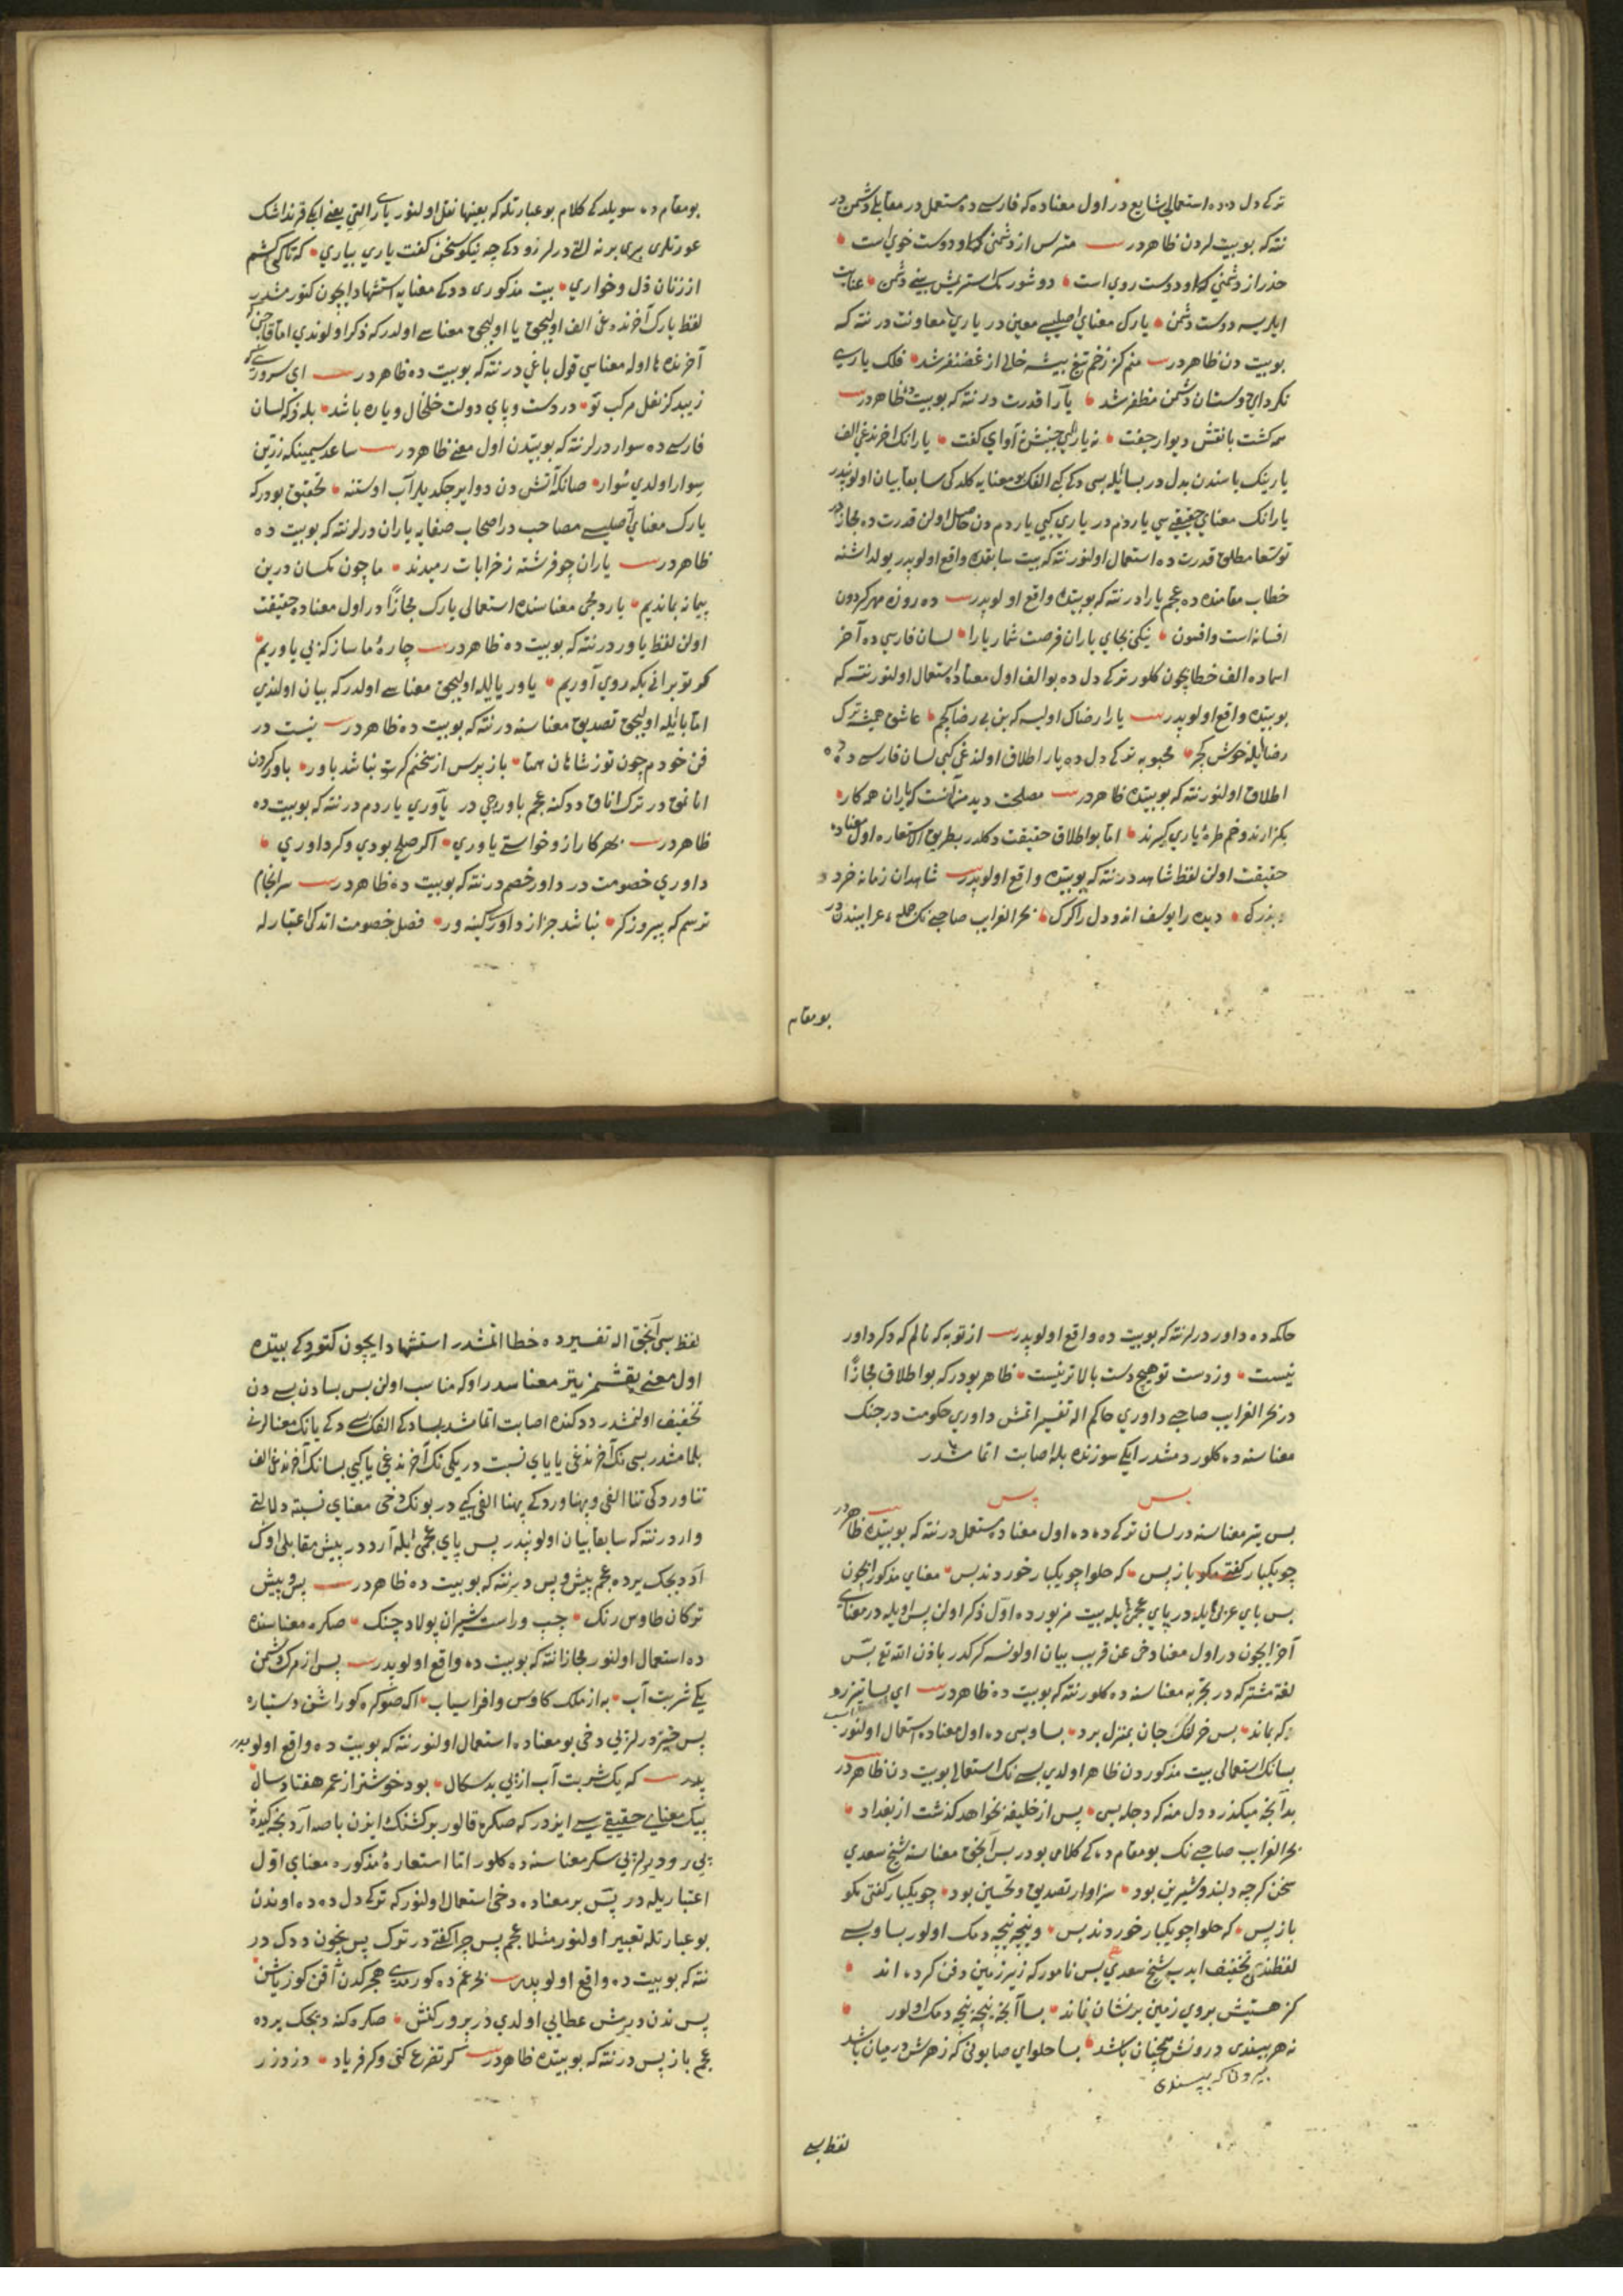 ترکی دل ده ده استعمالی شایع در اول معناده که فارسی ده مستعمل در مقابلی دشمن در
نته که بو بیت لردن ظاهردر مترس از دشمنی کاو دوست خوی است
حذر از دشمنی کاو دوست روی است دو شورک استریش بینی دشمن عنایت
ایلریسه دوست دشمن یارک معنای اصلیسی معین در یاری معاونت در نته که
بو بیت دن ظاهردر منم کز زخم تیغ بیشه خالی از غضنفر شد فلک یاری
نکرد ای دوستان دشمن مظفر شد یارا قدرت در نته که بو بیت ده ظاهردر
همه کشت با نقش دیوار جفت نه یارای جنبش نه آوای کفت یارانک اخرنده غی الف
یارینک یاسندن بدل در بسا ایله بسی ده کی کبی الفک بو معنایه کلدکی سابقا بیان اولونپدر
یارانک معنای حقیقیسی یاردم در یاری کبی یاردم دن حاصل اولن قدرت ده مجاز در
توسعا مطلق قدرت ده استعمال اولنور نته که بیت سابقده واقع اولوپدر یولداشنه
خطاب مقامنده ده عجم یارا در نته که بو بیتده واقع اولوپدر ده روزه مهر کردون
افسانه است و افسون نیکی بجای یاران فرصت شمار یارا لسان فارسی ده آخر
اسماده الف خطاب ایچون کلور ترکی دل ده بو الف اول معناده استعمال اولنور نته که
بو بیتده واقع اولوپدر یارا رضاک اولیسه که بن بی رضا کچم عاشق همیشه ترک
رضا ایله خوش کچر محبوبه ترکی دل ده یار اطلاق اولندغی کبی لسان فارسی ده ده
اطلاق اولنور نته که بو بیتده ظاهردر مصلحت دید من آنست که یاران همه کار
بکذارند و خم طره یاری کیرند اما بو اطلاق حقیقت دکلدر بطریق الاستعاره اول معناده
حقیقت اولن لفظ شاهد در نته که بو بیتده واقع اولوپدر شاهدان زمانه خرد و
بزرک دیده را یوسف اند و دل را کرک بحر الغرایب صاحبی نک جمله غرایبندن در
بو مقام
بو مقام ده سویلدکی کلام بو عبارتله که بعینها نقل اولنور یاری التی یعنی ایکی قرنداشک
عورتلری بری برنه التی درلر زود که چه نیکو سخن کفت یاری بیاری که تا کی کشم
از زنان ذل و خواری بیت مذکوری ددکی معنایه استشهاد ایچون کتورمشدر
لفظ یارک آخرنده غی الف اولیجق یا اولیجق معناسی اولدر که ذکر اولوندی اما قاچن که
آخرنده ها اوله معناسی قول باغی در نته که بو بیت ده ظاهردر ای سروری که
زیبد کز نعل مرکب تو در دست و پای دولت خلخال و یاره باشد بله زکه لسان
فارسی ده سوار درلر نته که بو بیتدن اول معنی ظاهردر ساعد سیمینکه زرین
سوار اولدی سوار صانکه آتش دن دوایر چکدیلر آب اوستنه تحقیق بودر که
یارک معنای اصلیسی مصاحب در اصحاب صفایه یاران درلر نته که بو بیت ده
ظاهردر یاران چو فرشته ز خرابات رمیدند ما چون مکسان درین
پیمانه بماندیم یاردمجی معناسنده استعمالی یارک مجازا در اول معناده حقیقت
اولن لفظ یاور در نته که بو بیت ده ظاهردر چاره ما ساز که بی یاوریم
کر تو برانی بکه روی آوریم یاور یا ایله اولیجق معناسی اولدر که بیان اولندی
اما با ایله اولیجق تصدیق معناسنه در نته که بو بیت ده ظاهردر نیست در
فن خودم چون تو ز شاهان همتا باز پرس از سخنم کر تو نباشد باور باور کردن
انانمق در ترک انانق ددکنه عجم باورجی در یاوری یاردم در نته که بو بیت ده
ظاهردر بهر کار ازو خواستی یاوری اکر صلح بودی و کر داوری
داوری خصومت در داور خصم در نته که بو بیت ده ظاهردر سرانجام
ترسم که پیروز کر نباشد جز از داور کینه ور فصل خصومت اتدکی اعتبارله
حاکمه ده داور درلر نته که بو بیت ده واقع اولوپدر از تو به که نالم که دکر داور
نیست وز دست تو هیچ دست بالاتر نیست ظاهر بودر که بو اطلاق مجازا
در بحر الغرایب صاحبی داوری حاکم اله تفسیر اتمش داوری حکومت در جنک
معناسنه ده کلور دمشدر ایکی سوزنده بله اصابت اتمامشدر
بس پس
بس یتر معناسنه در لسان ترکی ده ده اول معناده مستعمل در نته که بو بیتده ظاهردر
چو یکبار کفتی مکو باز پس که حلوا چو یکبار خوردند بس معنای مذکور ایچون
بس بای عربی ایله در پای عجمی ایله بیت مزبورده اول ذکر اولن پس اویله در معنای
آخر ایچون در اول معنا دخی عن قریب بیان اولونسه کرکدر باذن الله تع بس
لغت مشترکه در بخر به معناسنه ده کلور نته که بو بیت ده ظاهردر ای بسا تیزرو
که بماند بس خر لنک جان بمنزل برد بسا و بس ده اول معناده استعمال اولنور
بسانک استعمالی بیت مذکوردن ظاهر اولدی بسی نک استعمالی بو بیت دن ظاهردر
بدآنچه میکذرد دل منه که دجله بسی پس از خلیفه بخواهد کذشت از بغداد
بحر الغرایب صاحبی نک بو مقام ده کی کلامی بودر بس آنجق معناسنه شیخ سعدی
سخن کرچه دلبند و شیرین بود سزاوار تصدیق و تحسین بود چو یکبار کفتی مکو
باز پس که حلوا چو یکبار خوردند بس و نیچه نیچه دمک اولور بسا و بسی
لفظندن تخفیف ایدب شیخ سعدی بس نامور که زیر زمین دفن کرده اند
کز هستیش بروی زمین بر نشان نماند بسا آنچه نیچه نیچه دمک اولور
نه هر بیرون که بپسندی درونش همچنان باشد بسا حلوای صابونی که زهرش در میان باشد
بیرون که بپسندی
لفظ بسی
لفظ بسی آنجق اله تفسیرده خطا اتمشدر استشهاد ایچون کتوردکی بیتده
اول معنی یقشمز یتر معناسدر اوکه مناسب اولن بس بسادن بسی دن
تخفیف اولنمشدر ددکنده اصابت اتمامشدر بساده کی الفک بسی ده کی یانک معنالرنی
بلمامشدر بسی نک آخرنده غی یا یای نسبت در یکی نک آخرنده غی یا کبی بسانک آخرنده غی الف
تناورده کی تنا الفی و پهناورده کی پهنا الفی کبی در بونک دخی معنای نسبته دلالتی
واردر نته که سابقا بیان اولونپدر پس پای عجمی ایله آرد در پیش مقابلی اوک
آرد دیجک یرده عجم پیش و پس دیر نته که بو بیت ده ظاهردر پس و پیش
ترکان طاوس رنک چپ و راست شیران پولاد چنک صکره معناسنده
ده استعمال اولنور مجازا نته که بو بیت ده واقع اولوپدر پس از مرک دشمن
یکی شربت آب به از ملک کاوس و افراسیاب
پس خیز درلر پی دخی بو معناده استعمال اولنور نته که بو بیت ده واقع اولوپدر
پدر که یک شربت آب از پی بدسکال بود خوشتر از عمر هفتاد سال
پیک معنای حقیقیسی ایزدر که صکره قالور بر کشنک ایزن باصه آردنجه کیدنه
پی رو دیرلر پی سکر معناسنه ده کلور اما استعاره مذکوره معنای اول
اعتباریله در پس بر معناده دخی استعمال اولنور که ترکی دل ده ده اوندن
بو عبارتله تعبیر اولنور مثلا عجم پس چرا کفتی در ترک پس نچون ددک در
نته که بو بیت ده واقع اولوپدر
پس ندن دیرش عطایی اولدی در پرورکنش صکره کنه دیجک یرده
عجم باز پس در نته که بو بیتده ظاهردر کر تضرع کنی و کر فریاد دزد زر